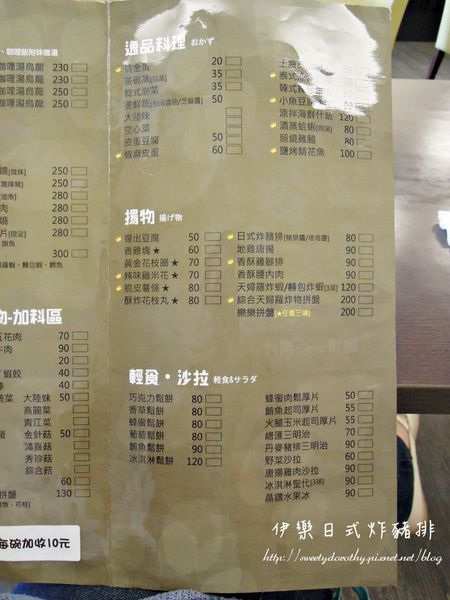 、咖哩飯附味噌湯
咖哩湯烏龍 230
咖哩湯烏龍 250
咖哩湯烏龍 250
咖哩湯烏龍 250
逸品料理 おかず
黃金蛋 20
茶碗蒸 35
韓式泡菜
燙鮮蔬 50
大陸妹
空心菜
皮蛋豆腐 50
椒麻皮蛋 60
土
泰式
韓式
小魚豆腐
涼拌海鮮什錦 120
酒蒸蛤蜊 80
照燒雞腿 80
鹽烤鯖花魚 100
250
250
280
280
280
280
300
揚物 揚げ物
揚出豆腐 50
香雞塊★ 60
黃金花枝圈★ 70
辣味雞米花★ 70
脆皮薯條★ 70
酥炸花枝丸★ 70
日式炸豬排 90
地雞唐揚 90
香酥雞腿排 90
香酥腰內肉 90
天婦羅炸蝦/麵包炸蝦 120
綜合天婦羅炸物拼盤 200
樂樂拼盤[★任選三項] 200
物-加料區
五花肉 70
牛肉 90
70
蝦餃 40
40
大陸妹 50
高麗菜
青江菜
金針菇 50
鴻喜菇
秀珍菇
綜合菇
60
拼盤 130
每碗加收10元
輕食・沙拉 軽食&サラダ
巧克力鬆餅 80
香草鬆餅 80
蜂蜜鬆餅 80
葡萄鬆餅 80
鮪魚鬆餅 90
冰淇淋鬆餅 120
蜂蜜肉鬆厚片 55
鮪魚起司厚片 55
火腿玉米起司厚片 55
總匯三明治 90
丹麥豬排三明治 90
野菜沙拉 50
唐揚雞肉沙拉 90
冰淇淋聖代 90
晶鑽水果冰 90
伊樂日式炸豬排
http://sweetydorothy.pixnet.net/blog